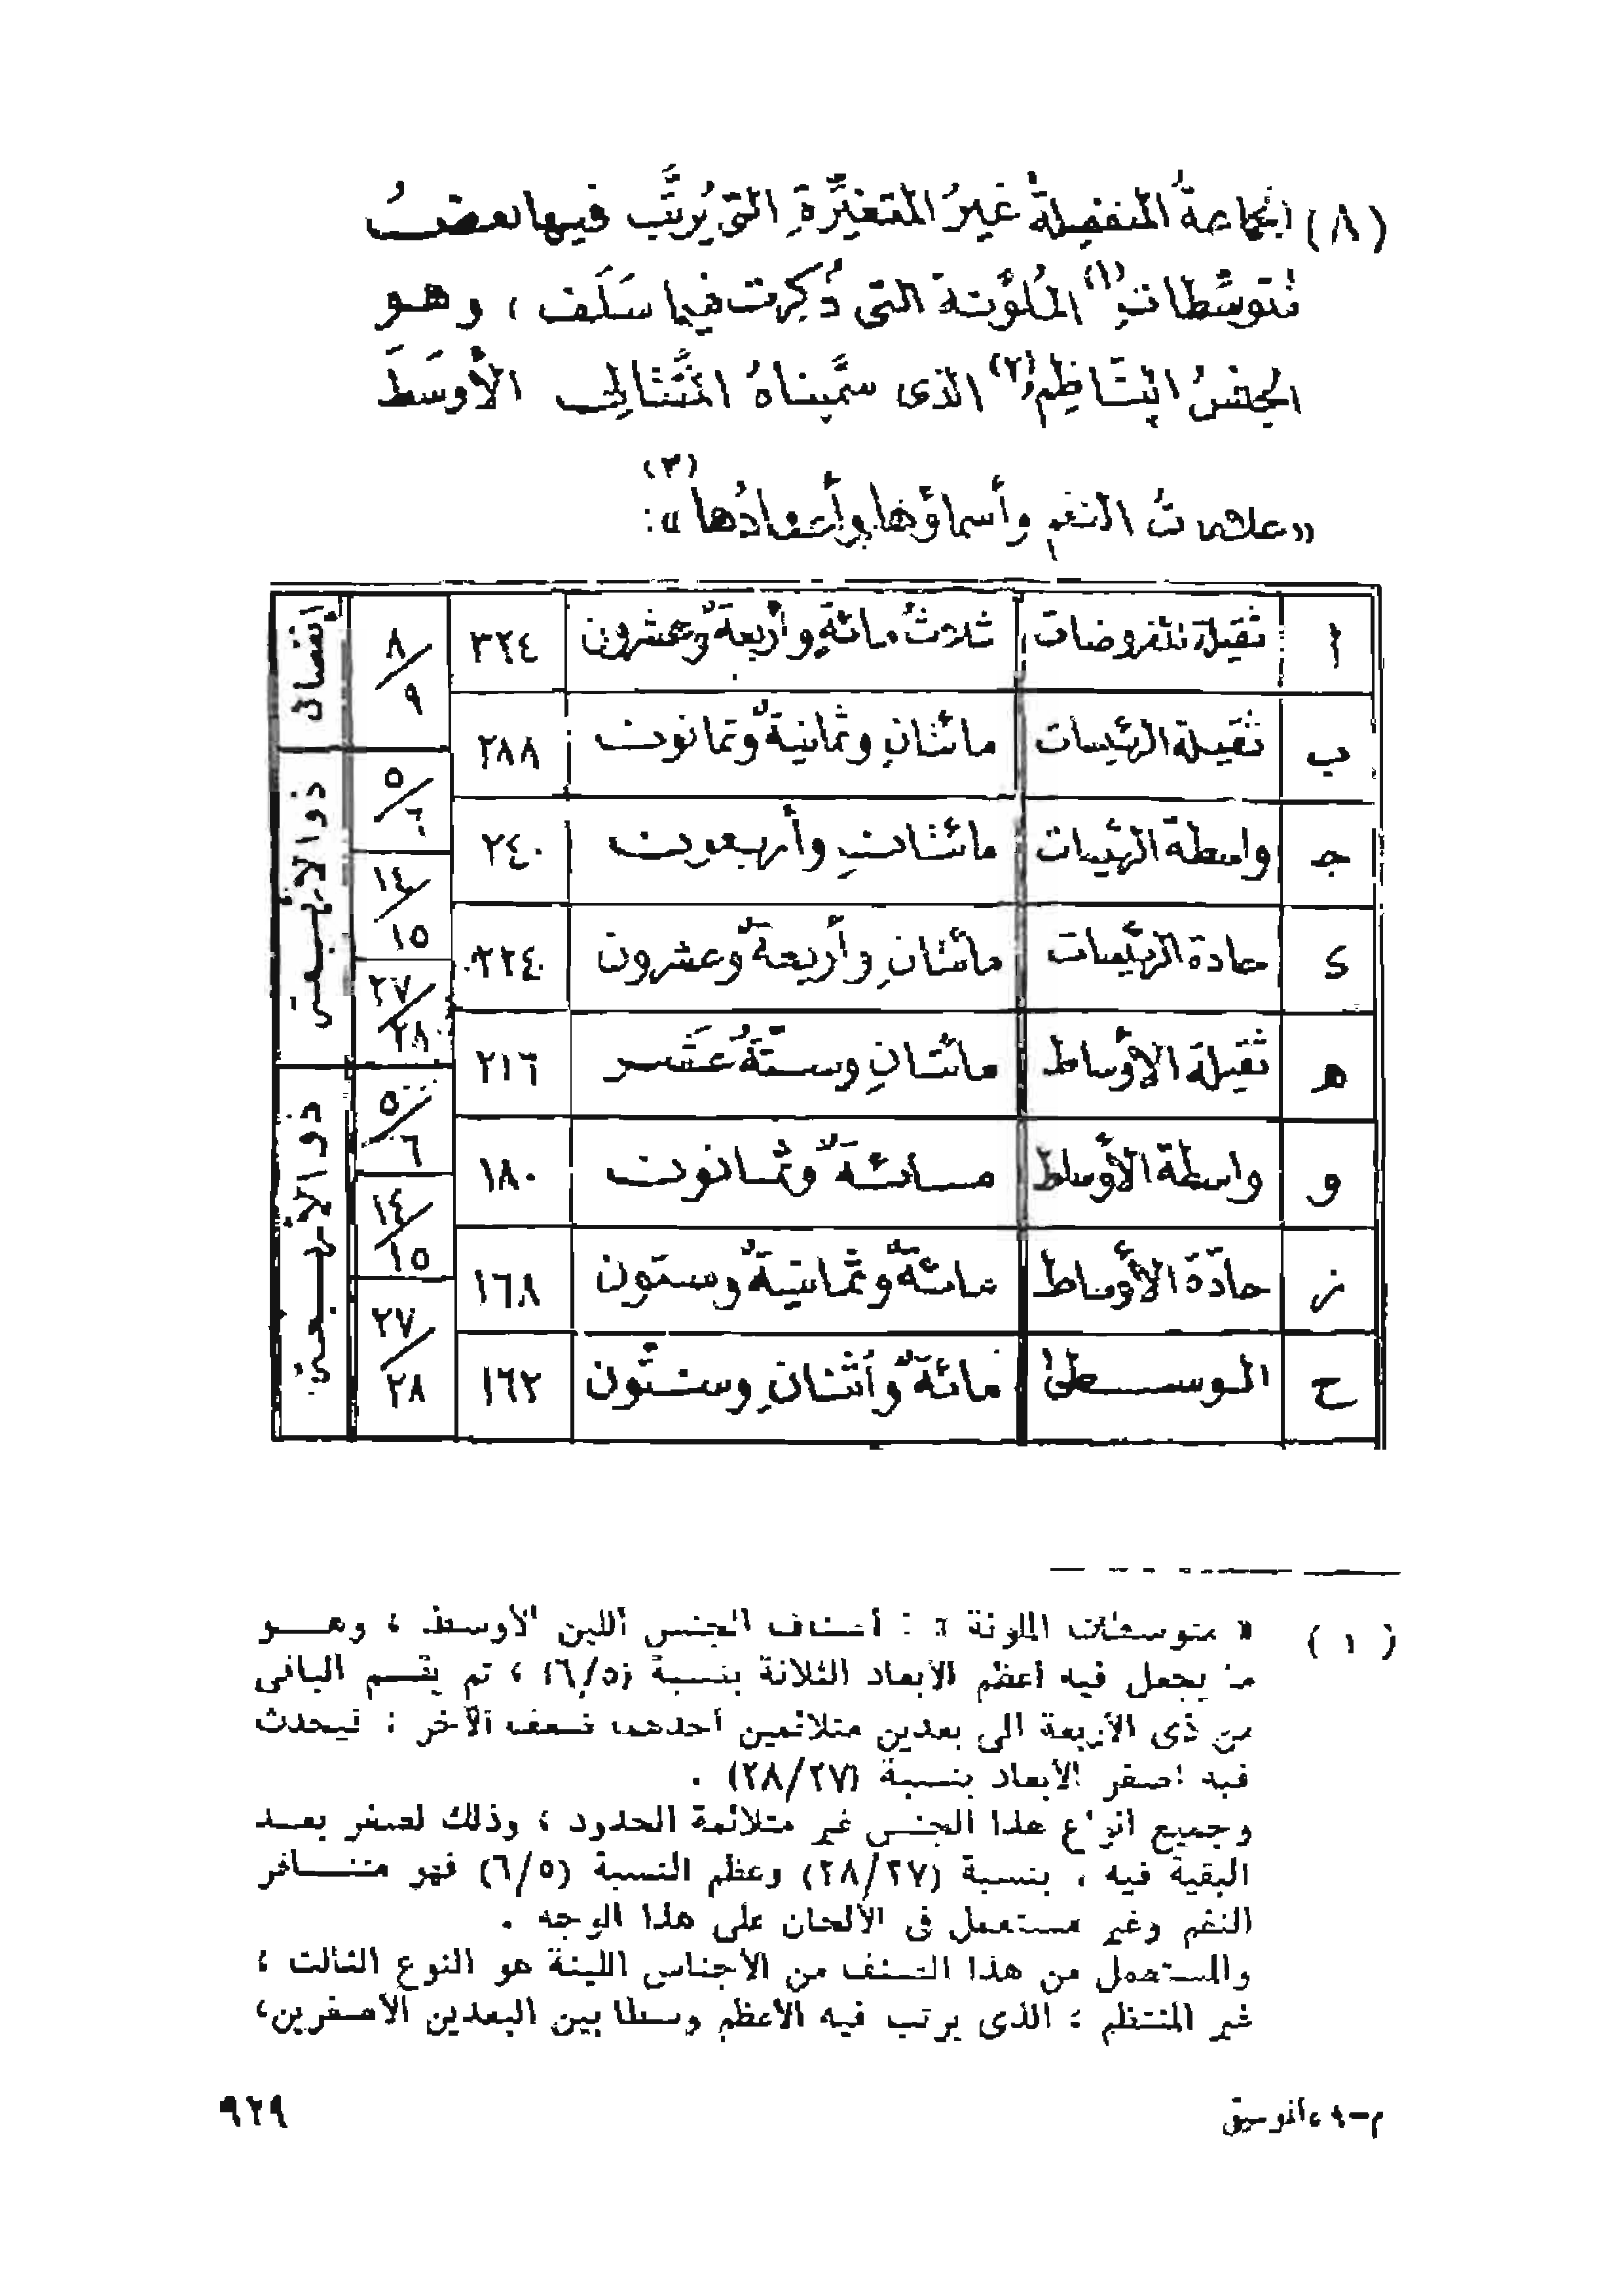 (٨) الجماعةُ المنفصِلةُ غيرُ المتغيِّرةِ التى يُرتَّب فيها بعضُ
مُتوسِّطاتِ(١) المُلوِّنة التى ذُكِرت فيما سَلَف ، وهو
الجنسُ المُتَناظِم(٢) الذى سمَّيناهُ المُتَتالِى الأوسَطَ
«علاماتُ النغم وأسماؤها وأعدادُها(٣)» :
ا ثقيلة المفروضات ثلاثُ مائةٍ وأربعةٌ وعشرون ٣٢٤ ٨/٩ إنفصال
ب ثقيلة الرئيسات مائتانِ وثمانيةٌ وثمانون ٢٨٨ ٥/٦ ذو الأربعة
ج واسطة الرئيسات مائتانِ وأربعون ٢٤٠ ١٤/١٥
د حادة الرئيسات مائتانِ وأربعةٌ وعشرون ٢٢٤ ٢٧/٢٨
ه ثقيلة الأوساط مائتانِ وستّةَ عَشَر ٢١٦ ٥/٦ ذو الأربعة
و واسطة الأوساط مائةٌ وثمانون ١٨٠ ١٤/١٥
ز حادّة الأوساط مائةٌ وثمانيةٌ وستون ١٦٨ ٢٧/٢٨
ح الوسطى مائةٌ وأثنانِ وستّون ١٦٢
(١) « متوسطات الملونة » : أصناف الجنس اللين الأوسط ، وهو
ما يجعل فيه أعظم الأبعاد الثلاثة بنسبة (٦/٥) ، ثم يقسم الباقى
من ذى الأربعة الى بعدين متلائمين أحدهما ضعف الآخر : فيحدث
فيه أصغر الأبعاد بنسبة (٢٨/٢٧) .
وجميع أنواع هذا الجنس غير متلائمة الحدود ، وذلك لصغر بعد
البقية فيه ، بنسبة (٢٨/٢٧) وعظم النسبة (٦/٥) فهو متنافر
النغم وغير مستعمل فى الألحان على هذا الوجه .
والمستعمل من هذا الصنف من الأجناس اللينة هو النوع الثالث ،
غير المنتظم ، الذى يرتب فيه الأعظم وسطا بين البعدين الأصغرين،
٩٢٩
م-٩ الموسيقى